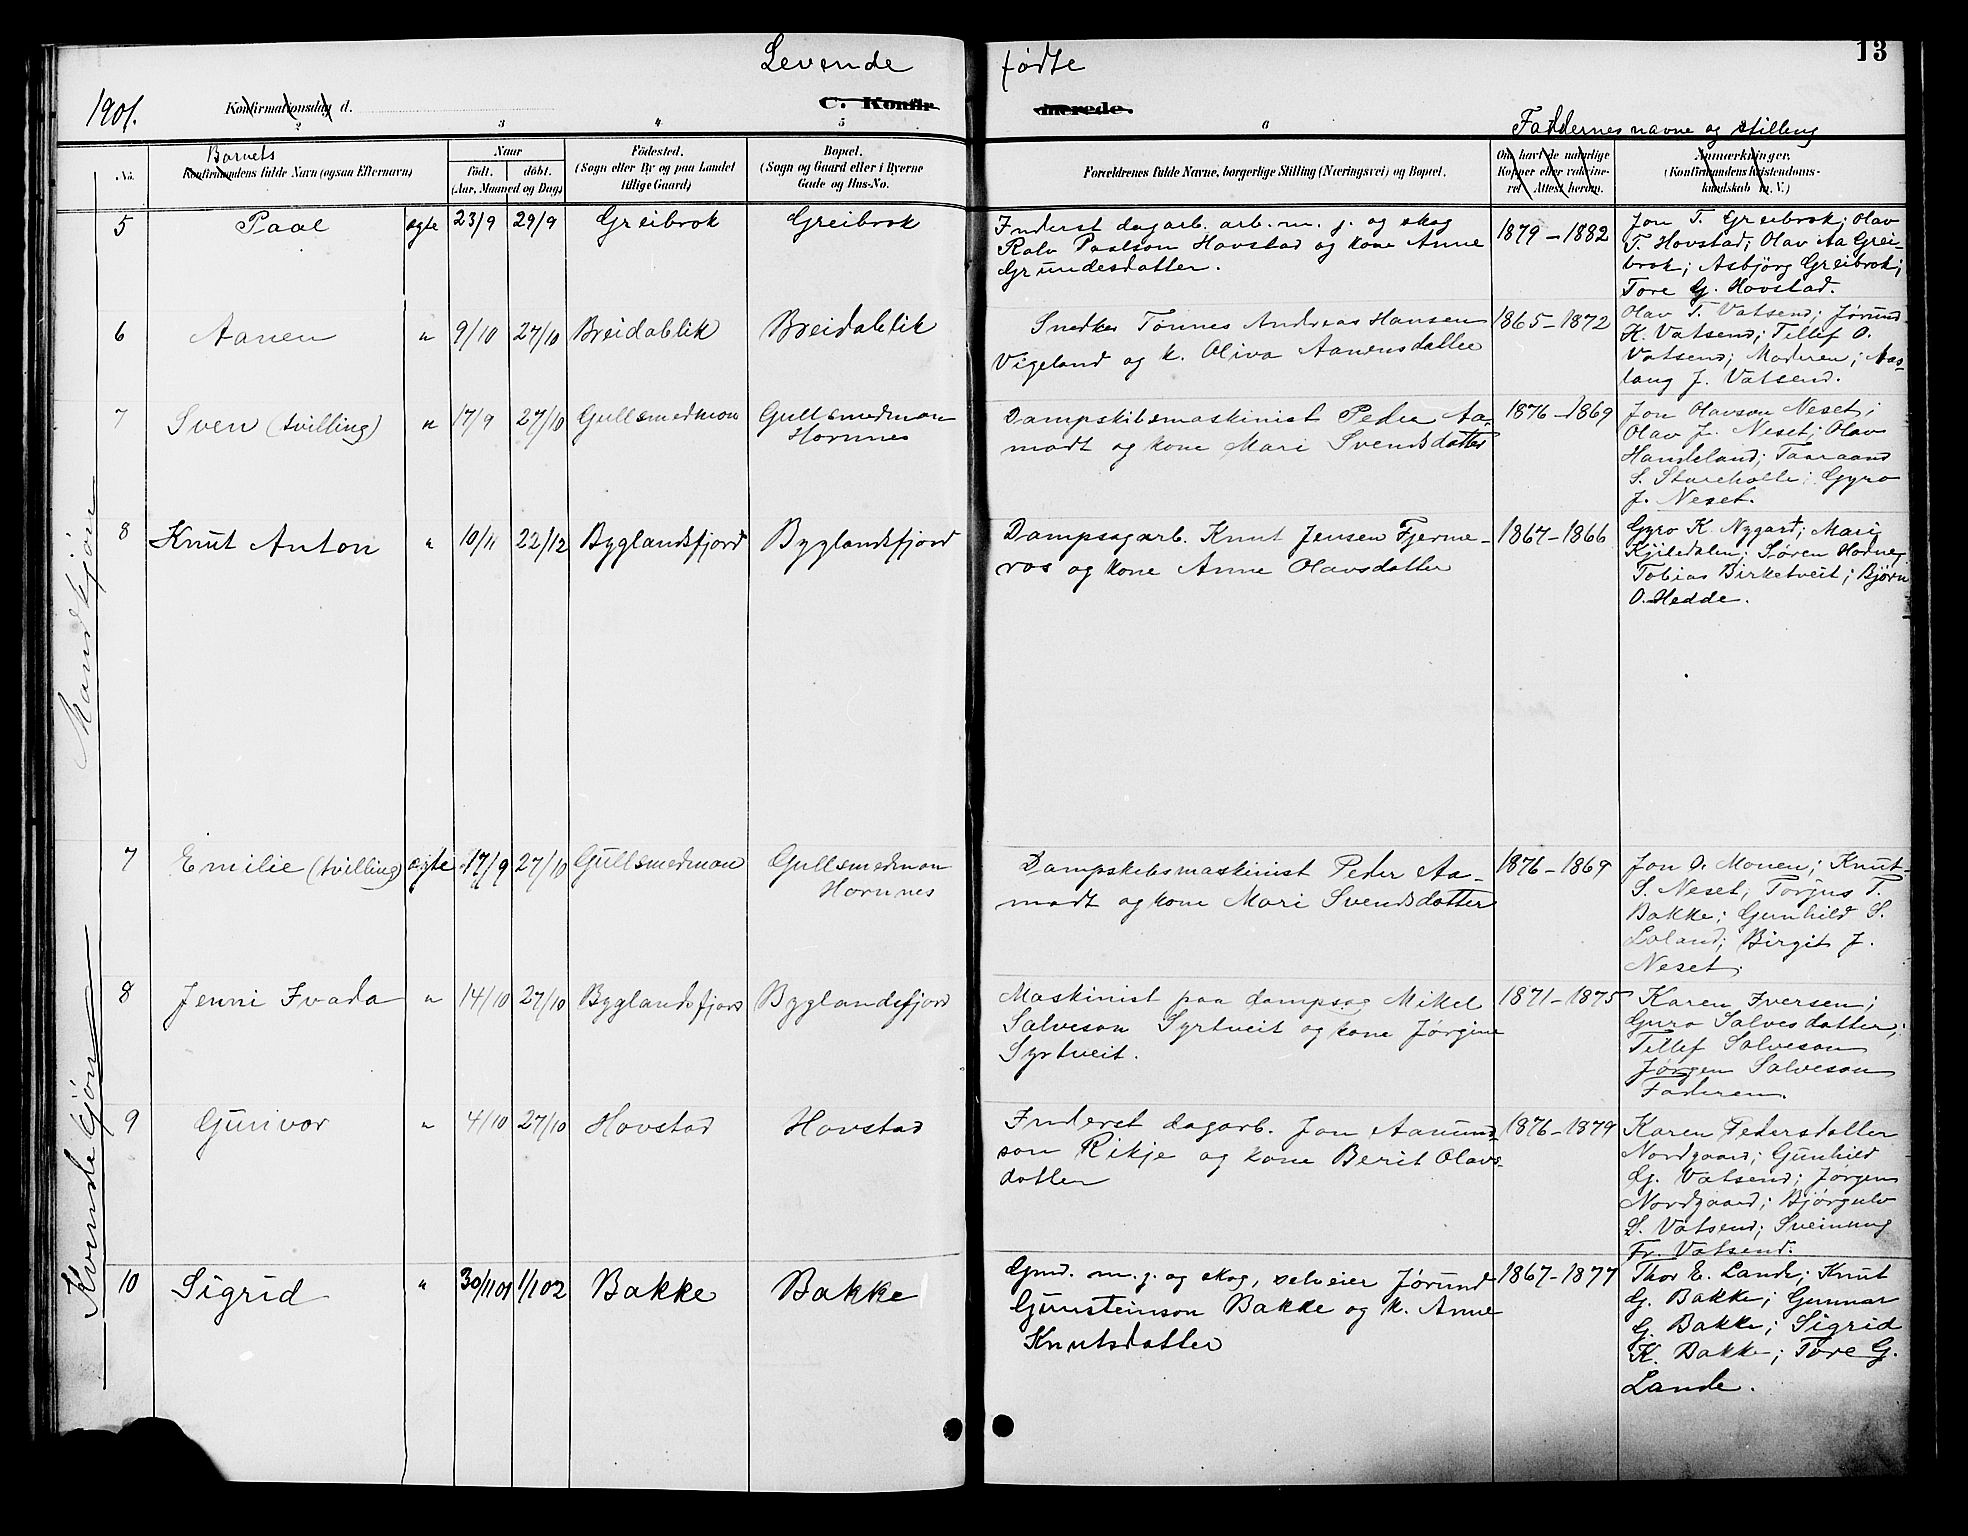 Levende
fødte
13
1901.
Konfirmationsdag d.
C. Konfir-
merede.
2
3
4
5
6
Faddernes navne og stilling
No.
Barnets
Konfirmandens fulde Navn (ogsaa Efternavn)
Naar
Født. døbt.
(Aar, Maaned og Dag)
Fødested.
(Sogn eller By og paa Landet
tillige Gaard)
Bopæl.
(Sogn og Gaard eller i Byerne
Gade og Hus-No.
Forældrenes fulde Navne, borgerlige Stilling (Næringsvei) og Bopæl.
Om havt de naturlige
Kopper eller vaksine-
ret Attest herom.
Anmærkninger.
(Konfirmandens Kristendoms-
kundskab m. V.)
Mandkjøn
5 Paal ægte 23/9 29/9 Greibrok Greibrok
Inderst dagarb. arb. m. j. og skog
Ralv Paalson Hovstad og kone Anne
Grundesdatter.
1879-1882
Jon T. Greibrok; Olav
T. Hovstad; Olav Aa Grei-
brok; Asbjörg Greibrok;
Tore G. Hovstad.
6 Aanen " 9/10 27/10 Breidablik Breidablik
Snedker Tønnes Andreas Hansen
Vigeland og k. Oliva Aanensdatter
1865-1872
Olav T. Vatsend; Jørund
K. Vatsend; Tellef O.
Vatsend; Moderen; Aas-
laug J. Vatsend.
7 Sven (tvilling) " 17/9 27/10 Gullsmedmon Gullsmedmon
Hornnes
Dampskibsmaskinist Peder Aa-
modt og kone Mari Svendsdatter
1876-1869
Jon Olavson Neset;
Olav J. Neset; Olav
Handeland; Taaraand
S. Storeholt; Gyro
J. Neset.
8 Knut Anton " 10/11 22/12 Byglandsfjord Byglandsfjord
Dampsagarb. Knut Jensen Fjerme-
ros og kone Anne Olavsdatter
1867-1866
Gyro K. Nygard; Mari
Kjiledalen; Søren Hodne;
Tobias Birketveit; Bjørn
O. Hedde.
Kvendekjøn
7 Emilie (tvilling) ægte 17/9 27/10 Gullsmedmon Gullsmedmon
Hornnes
Dampskibsmaskinist Peder Aa-
modt og kone Mari Svendsdatter
1876-1869
Jon O. Monen; Knut
S. Neset; Torjus T.
Bakke; Gunhild S.
Loland; Birgit J.
Neset.
8 Jenni Ivada " 14/10 27/10 Byglandsfjord Byglandsfjord
Maskinist paa dampsag Mikel
Salveson Syrtveit og kone Jørgine
Syrtveit.
1871-1875
Karen Iversen;
Guro Salvesdatter;
Tellef Salveson
Jørgen Salveson
Faderen.
9 Gunvor " 4/10 27/10 Hovstad Hovstad
Inderst dagarb. Jon Aanund-
son Rikje og kone Berit Olavs-
datter
1876-1879
Karen Pedersdatter
Nordgaard; Gunhild
G. Vatsend; Jørgen
Nordgaard; Bjørgulv
S. Vatsend; Sveinung
Fr. Vatsend.
10 Sigrid " 30/1101 1/102 Bakke Bakke
Gmd. m. j. og skog, selveier Jørund
Gunsteinson Bakke og k. Anne
Knutsdatter
1867-1877
Thor E. Lande; Knut
G. Bakke; Gunnar
G. Bakke; Sigrid
K. Bakke; Tore G.
Lande.